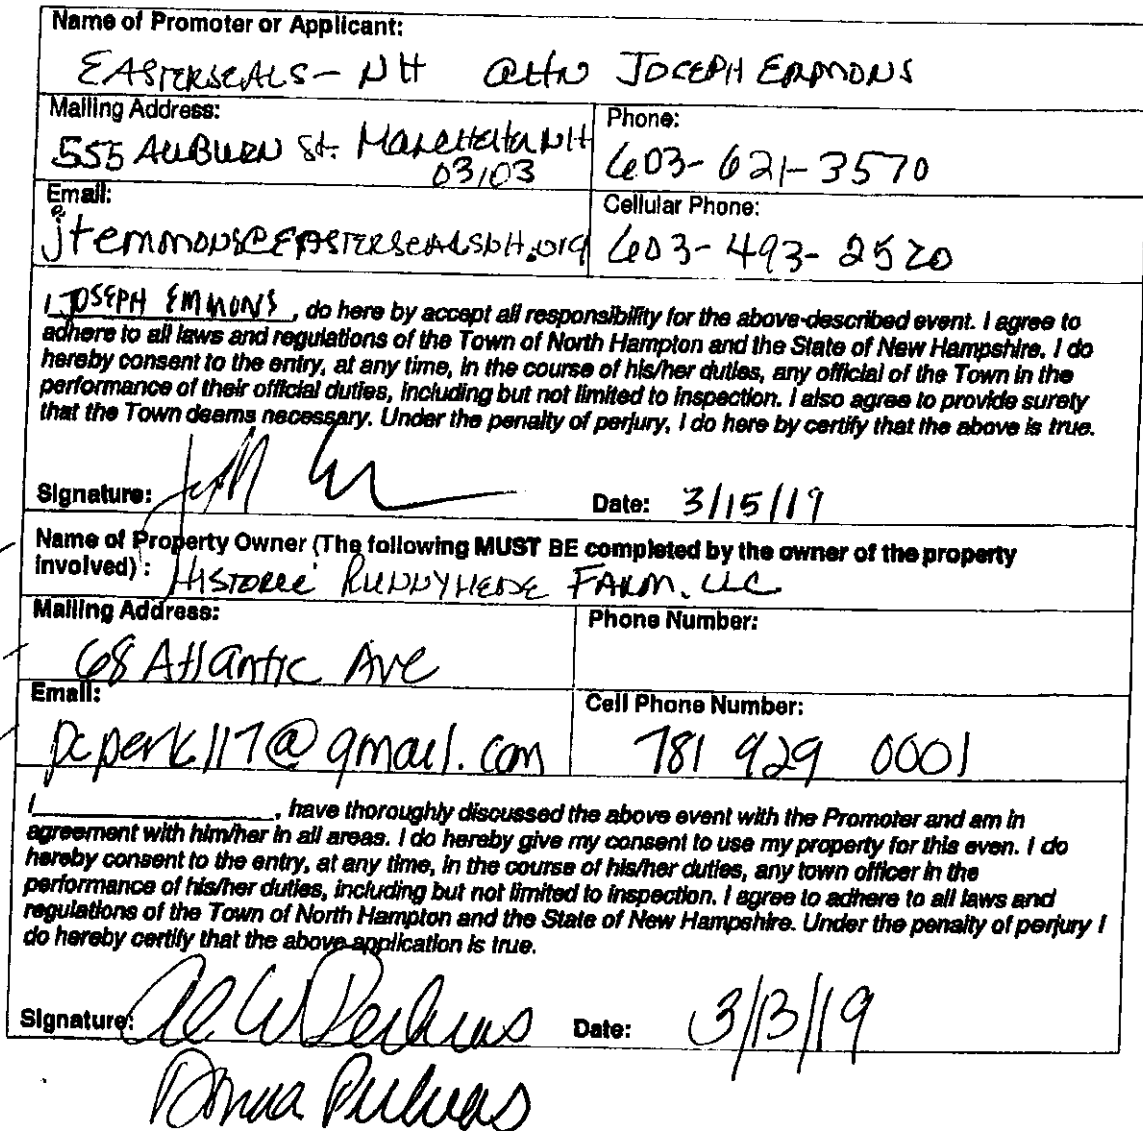 Name of Promoter or Applicant:
EASTERSEALS - NH attn JOSEPH EMMONS
Mailing Address:
Phone:
555 AUBURN St. Manchester NH
03103
603-621-3570
Email:
Cellular Phone:
jtemmons@EASTERSEALSNH.org
603-493-2520
I JOSEPH EMMONS, do here by accept all responsibility for the above-described event. I agree to
adhere to all laws and regulations of the Town of North Hampton and the State of New Hampshire. I do
hereby consent to the entry, at any time, in the course of his/her duties, any official of the Town in the
performance of their official duties, including but not limited to inspection. I also agree to provide surety
that the Town deems necessary. Under the penalty of perjury, I do here by certify that the above is true.
Signature: Date: 3/15/19
Name of Property Owner (The following MUST BE completed by the owner of the property
involved): HISTORIC RUNNYMEDE FARM, LLC
Mailing Address:
Phone Number:
68 Atlantic Ave
Email:
Cell Phone Number:
pcperk117@gmail.com
781 929 0001
I______________, have thoroughly discussed the above event with the Promoter and am in
agreement with him/her in all areas. I do hereby give my consent to use my property for this even. I do
hereby consent to the entry, at any time, in the course of his/her duties, any town officer in the
performance of his/her duties, including but not limited to inspection. I agree to adhere to all laws and
regulations of the Town of North Hampton and the State of New Hampshire. Under the penalty of perjury I
do hereby certify that the above application is true.
Signature: Perkins Date: 3/13/19
Donna Perkins